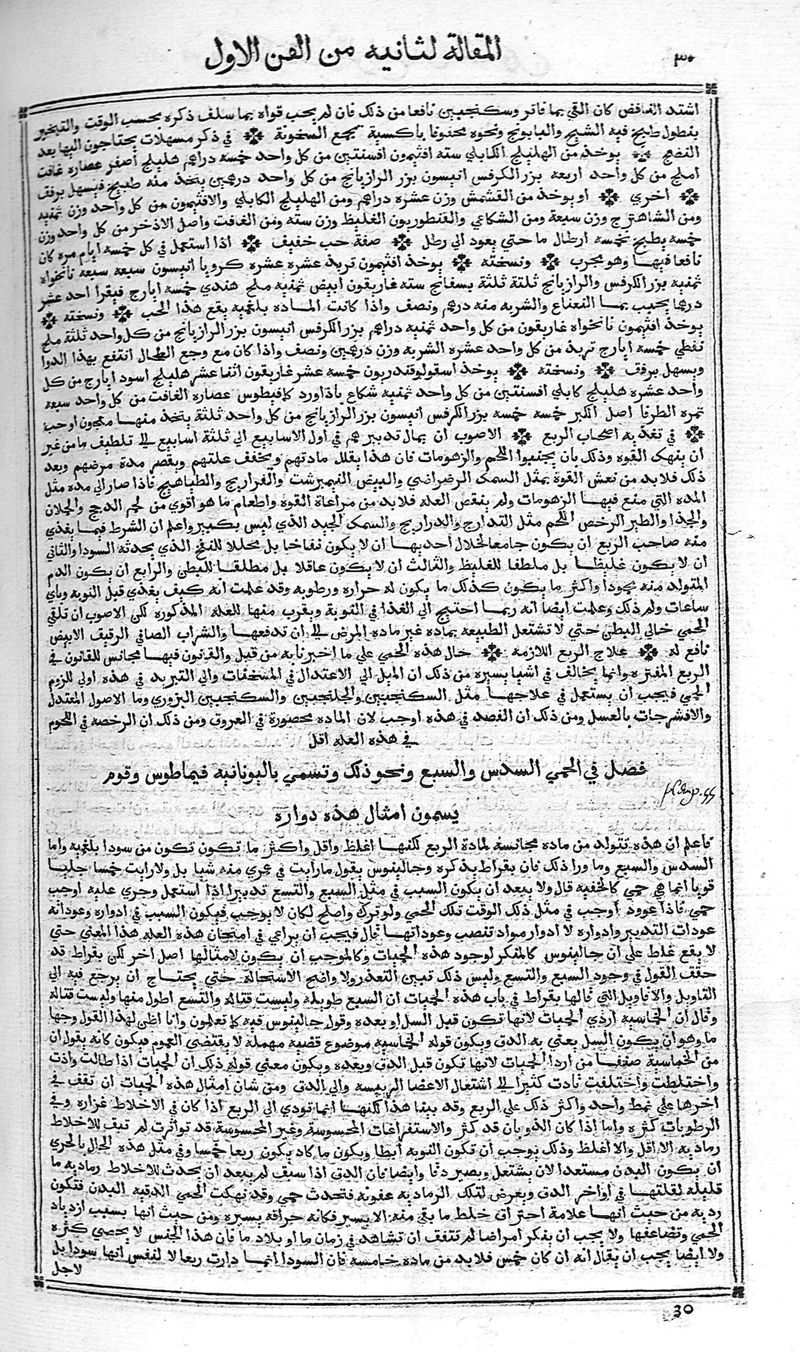 ٣٠ المقالة لثانيه من الفن الاول
اشتد النافض كان القي بما فاتر وسكنجبين نافعا من ذلك فان لم يجب قواه بما سلف ذكره بحسب الوقت والتبخير
بنطول طبيخ فيه الشيح والبابونج ونحوه محفوفا باكسية تجمع السخونة في ذكر مسهلات يحتاجون اليها بعد
النضج يوخذ من الهليلج الكابلي سته افتيمون افسنتين من كل واحد خمسه دراهم هليلج أصفر عصاره غافت
املج من كل واحد اربعه بزر الكرفس انيسون بزر الرازيانج من كل واحد درهمين يتخذ منه طبيخ فيسهل برفق
اخري او يوخذ من القشمش وزن عشره دراهم ومن الهليلج الكابلي والافتيمون من كل واحد وزن ثمنيه
ومن الشاهترج وزن سبعة ومن الشكاعي والقنطوريون الغليظ وزن سته ومن الغافت واصل الاذخر من كل واحد وزن
خمسه يطبخ بخمسه ارطال ما حتي يعود الي رطل صفة حب خفيف اذا استعمل في كل خمسه ايام مره كان
نافعا فيها وهو مجرب ونسخته يوخذ افتيمون تربد عشره عشره كرويا انيسون سبعه سبعه نانخواه
ثمنيه بزر الكرفس والرازيانج ثلثة ثلثة بسفانج سته غاريقون ابيض ثمنيه ملح هندي خمسه ايارج فيقرا احد عشر
درهما يحبب بما النعناع والشربه منه درهم ونصف واذا كانت الماده بلغميه يقع هذا الحب ونسخته
يوخذ افتيمون نانخواه غاريقون من كل واحد ثمنيه دراهم بزر الكرفس انيسون بزر الرازيانج من كل واحد ثلثة ملح
نفطي خمسه ايارج تربد من كل واحد عشره الشربه وزن درهمين ونصف واذا كان مع وجع الطحال انتفع بهذا الدوا
ويسهل برفق ونسخته يوخذ اسقولوقندريون خمسه عشر غاريقون اثنا عشر هليلج اسود ايارج من كل
واحد عشره هليلج كابلي افسنتين من كل واحد ثمنيه شكاع باذاورد كمافيطوس عصاره الغافت من كل واحد سبعه
ثمره الطرفا اصل الكبر خمسه خمسه بزر الكرفس انيسون بزر الرازيانج من كل واحد ثلثة يتخذ منها معجون او حب
في تغذيه اصحاب الربع الاصوب ان يمال تدبيرهم في اول الاسابيع الي ثلثة اسابيع الي تلطيف ما من غير
ان ينهك القوه وذلك بان يجنبوا اللحم والزهومات فان هذا يقلل مادتهم ويخفف علتهم ويقصر مده مرضهم وبعد
ذلك فلابد من نعش القوة بمثل السمك الرضراضي والبيض النيمبرشت والفراريج والطياهيج فاذا صار الي مده مثل
المده التي منع فيها الزهومات ولم ينقص العله فلابد من مراعاة القوة واطعام ما هو اقوي من لحم الدجج والحملان
والجدا والطير الرخص اللحم مثل التدارج والدراريج والسمك الجيد الذي ليس بكبير واعلم ان الشرط فيما يغذي
منه صاحب الربع ان يكون جامعا لخلال احديها ان لا يكون نفاخا بل محللا للنفخ الذي يحدثه السودا والثاني
ان لا يكون غليظا بل ملطفا للغليظ والثالث ان لا يكون عاقلا بل مطلقا للبطن والرابع ان يكون الدم
المتولد منه محمودا واكثر ما يكون كذلك ما يكون له حراره ورطوبه وقد علمت انه كيف يغذي قبل النوبه وباي
ساعات ولم ذلك وعلمت ايضا انه ربما احتيج الي الغذا في النوبة ويقرب منها للعله المذكوره لكن الاصوب ان تلقي
الحمي خالي البطن حتي لا تشتغل الطبيعه بماده غير ماده المرض الي ان تدفعها والشراب الصافي الرقيق الابيض
نافع له علاج الربع اللازمه حال هذه الحمي علي ما اخبرنا به من قبل والقانون فيها مجانس للقانون في
الربع المفتره وانما يخالف في اشيا يسيره من ذلك ان الميل الي الاعتدال في المسخنات والي التبريد في هذه اولي للزوم
الحمي فيجب ان يستعمل في علاجها مثل السكنجبين والجلنجبين والسكنجبين البزوري وما الاصول المعتدل
والافشرجات بالعسل ومن ذلك ان الفصد في هذه اوجب لان الماده محصورة في العروق ومن ذلك ان الرخصه في اللحوم
في هذه العله اقل
فصل في الحمي السدس والسبع ونحو ذلك وتسمي باليونانيه فيماطوس وقوم
يسمون امثال هذه دواره
فاعلم ان هذه تتولد من ماده مجانسة لمادة الربع لكنها اغلظ واقل واكثر ما تكون تكون من سودا بلغميه واما
السدس والسبع وما ورا ذلك فان بقراط يذكره وجالينوس يقول ما رايت في عمري منه شيا بل ولا رايت خمسا جليا
قويا انما هي حمي كالخفيه قال ولا يبعد ان يكون السبب في مثل السبع والتسع تدبيرا اذا استعمل وجري عليه اوجب
حمي فاذا عوود اوجب في مثل ذلك الوقت تلك الحمي ولو ترك واصلح لكان لا يوجب فيكون السبب في ادواره وعوداته
عودات التدبير وادواره لا ادوار مواد تنصب وعوداتها قال فيجب ان يراعي في امتحان هذه العله هذا المعني حتي
لا يقع غلط علي ان جالينوس كالمنكر لوجود هذه الحميات وكالموجب ان يكون لامثالها اصل اخر لكن بقراط قد
حقق القول في وجود السبع والتسع وليس ذلك تبين التعذر ولا واضح الاستحالة حتي يحتاج ان يرجع فيه الي
القاويل والاقاويل التي قالها بقراط في باب هذه الحميات ان السبع طويله وليست قتاله والتسع اطول منها وليست قتاله
وقال ان الخماسيه اردي الحميات لانها تكون قبل السل او بعده وقول جالينوس فيه كما تعلمون وانا اظن لهذا القول وجها
ما وهو ان يكون السل يعني به الدق ويكون قوله الخماسيه موضوع قضيه مهمله لا يقتضي العموم فيكون كانه يقول ان
من الخماسية صنفا من اردا الحميات لانها تكون قبل الدق وبعده ويكون معني قوله ذلك ان الحميات اذا طالت واذت
واختلطت واختلفت نادت كثيرا الي اشتعال الاعضا الرييسه والي الدق ومن شان امثال هذه الحميات ان تقف في
اخرها علي نمط واحد واكثر ذلك علي الربع وقد بينا هذا لكنها انما تودي الي الربع اذا كان في الاخلاط غزاره وفي
الرطوبات كثره واما اذا كان الذوبان قد كثر والاستفراغات المحسوسة وغير المحسوسة قد تواترت لم تبق للاخلاط
رماديه الا اقل والا اغلظ وذلك يوجب ان تكون النوبة ابطا ويكون ما كاد يكون ربعا خمسا وفي مثل هذه الحال بالحري
ان يكون البدن مستعدا لان يشتعل ويصير دقا وايضا فان الدق اذا سبق لم يبعد ان تحدث للاخلاط رماديه ما
قليله لقلتها في اواخر الدق ويعرض لتلك الرماديه عفونه فتحدث حمي وقد نهكت الحمي الدقيه البدن فتكون
رديه من حيث انها علامة احتراق خلط ما بقي منه الا يسير فكانه حراقه يسيره ومن حيث انها بسبب ازدياد
الحمي وتضاعفها ولا يجب ان ينكر امراضا لم تتفق ان تشاهد في زمان ما او بلاد ما فان هذا الجنس لا يحصي كثره
ولا ايضا يجب ان يقال انه ان كان خمس فلابد من ماده خامسه فان السودا انما دارت ربعا لا لنفس انها سودا بل
لاجل
30